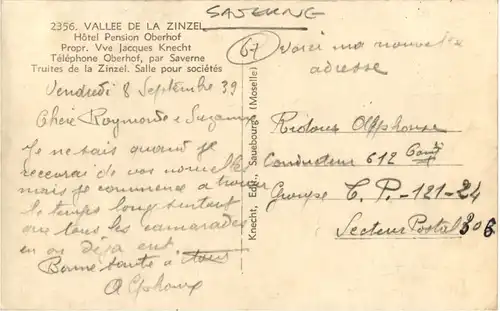 SAVERNE
2356. VALLEE DE LA ZINZEL
Hôtel Pension Oberhof
Propr. Vve Jacques Knecht
Téléphone Oberhof, par Saverne
Truites de la Zinzel. Salle pour sociétés
67
Voici ma nouvelle
adresse
Vendredi 8 Septembre 39
Chère Raymonde e Suzanne
Je ne sais quand je
recevrai de vos nouvelles
mais je commence a trouver
le temps long surtout
que tous les camarades
en on déja ent
Bonne santé à tous
Alphonse
Knecht, Edit., Sauebourg (Moselle)
Alpphonse
Conducteur 612
Groupe T. P.-121-24
Secteur Postal 306